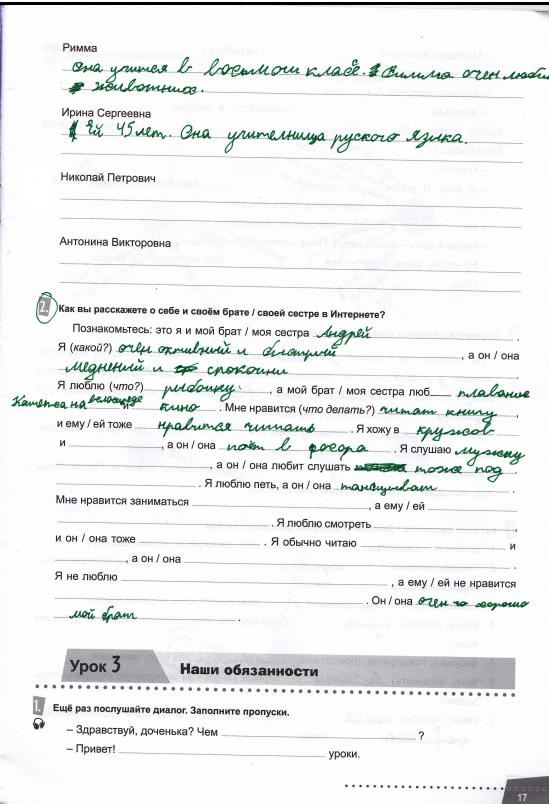 Римма
Она учится в восьмои класе. Римма очен люби
животних.
Ирина Сергеевна
Ей 45 лет. Она учителница руского языка.
Николай Петрович
Антонина Викторовна
2. Как вы расскажете о себе и своём брате / своей сестре в Интернете?
Познакомьтесь: это я и мой брат / моя сестра Андрей .
Я (какой?) очен активний и бистрий , а он / она
медлений и спокоини .
Я люблю (что?) рыбалку. , а мой брат / моя сестра люб плавание
Кататса на велосипеде и кино . Мне нравится (что делать?) читат книгу ,
и ему / ей тоже нравится читать . Я хожу в кружов
и , а он / она поёт в . Я слушаю музику
, а он / она любит слушать тоже под
. Я люблю петь, а он / она тансцивает .
Мне нравится заниматься , а ему / ей
. Я люблю смотреть ,
и он / она тоже . Я обычно читаю и
, а он / она .
Я не люблю , а ему / ей не нравится
. Он / она очен хорошо
мой брат .
Урок 3 Наши обязанности
1. Ещё раз послушайте диалог. Заполните пропуски.
– Здравствуй, доченька? Чем ?
– Привет! уроки.
17